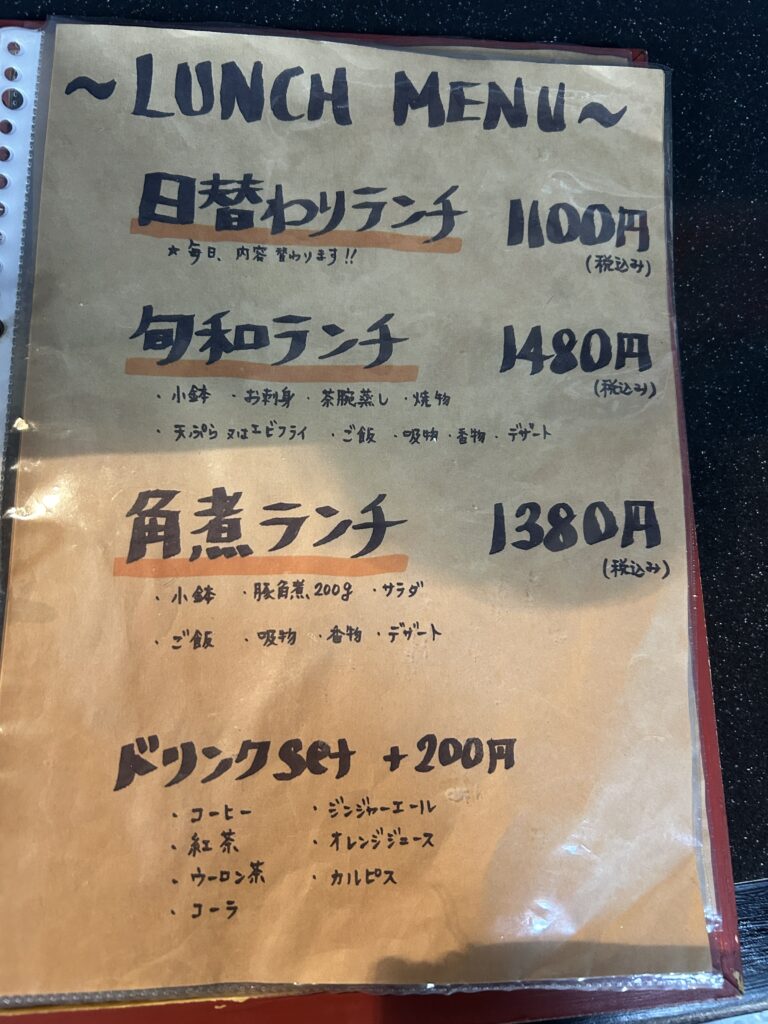 ~LUNCH MENU~
日替わりランチ 1100円
★毎日、内容替わります!! (税込み)
旬和ランチ 1480円
(税込み)
・小鉢 ・お刺身 ・茶腕蒸し ・焼物
・天ぷら又はエビフライ ・ご飯 ・吸物 ・香物 ・デザート
角煮ランチ 1380円
(税込み)
・小鉢 ・豚角煮、200g ・サラダ
・ご飯 ・吸物 ・香物 ・デザート
ドリンクset +200円
・コーヒー ・ジンジャーエール
・紅茶 ・オレンジジュース
・ウーロン茶 ・カルピス
・コーラ